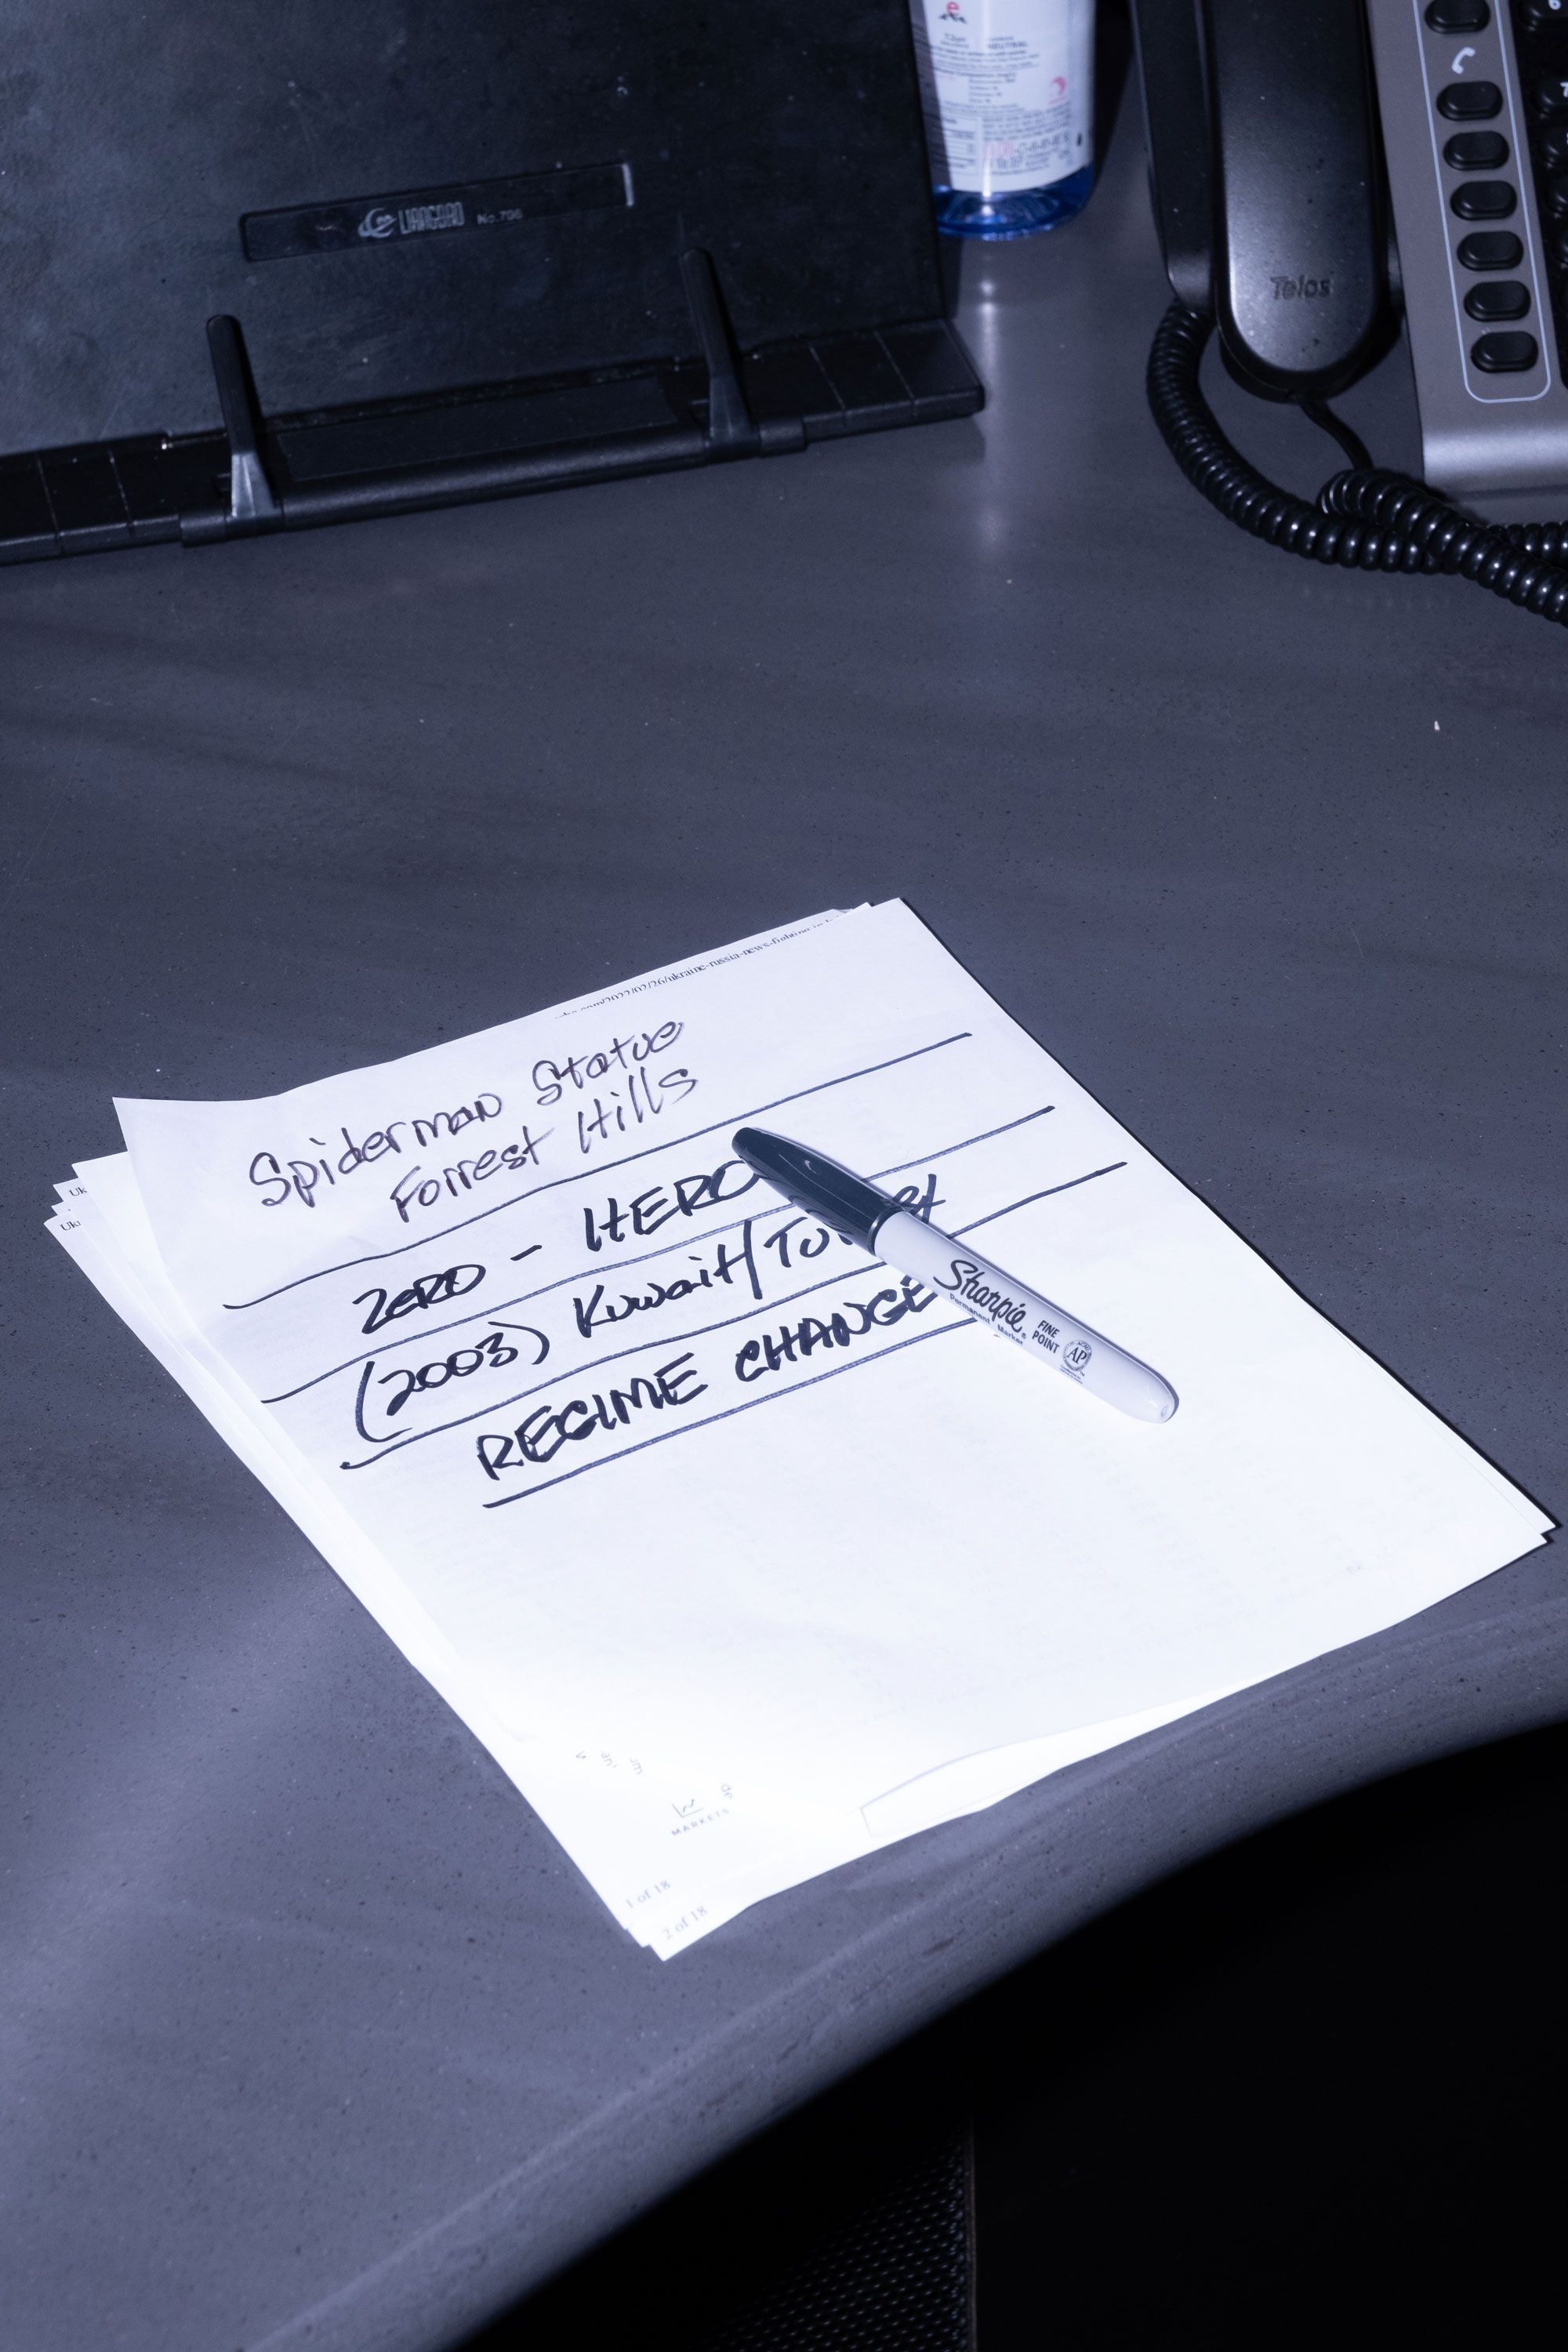 NEUTRAL
LIANGGONG No.706
Telos
.com/2022/02/26/ukraine-russia-news-fighting-
Spiderman Statue
Forrest Hills
ZERO - HERO
(2003) Kuwait/
REGIME CHANGE
Sharpie
Permanent Marker
FINE
POINT
AP
MARKETS
1 of 18
2 of 18